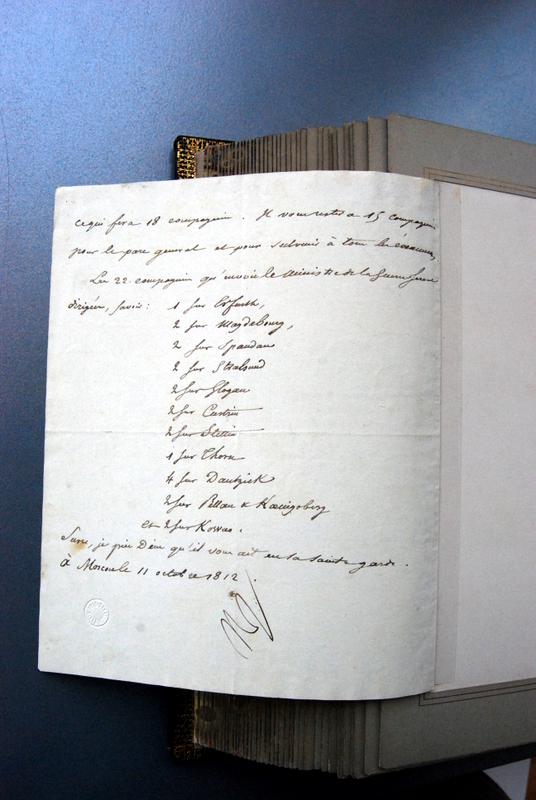 ce qui fera 18 compagnies. Il vous restera 15 compagnies
pour le parc general et pour subvenir à tous les
Les 22 compagnies qu'envoie le Ministre de la Guerre seront
dirigées, savoir: 1 sur Erfurth,
2 sur Magdebourg,
2 sur Spandau
2 sur Stralsund
2 sur Glogau
2 sur Custrin
2 sur Stettin
1 sur Thorn
4 sur Dantzick
2 sur Pillau & Kœnigsberg
et 2 sur Kowno.
Sur ce, je prie Dieu qu'il vous ait en sa sainte garde.
à Moscou le 11 octobre 1812.